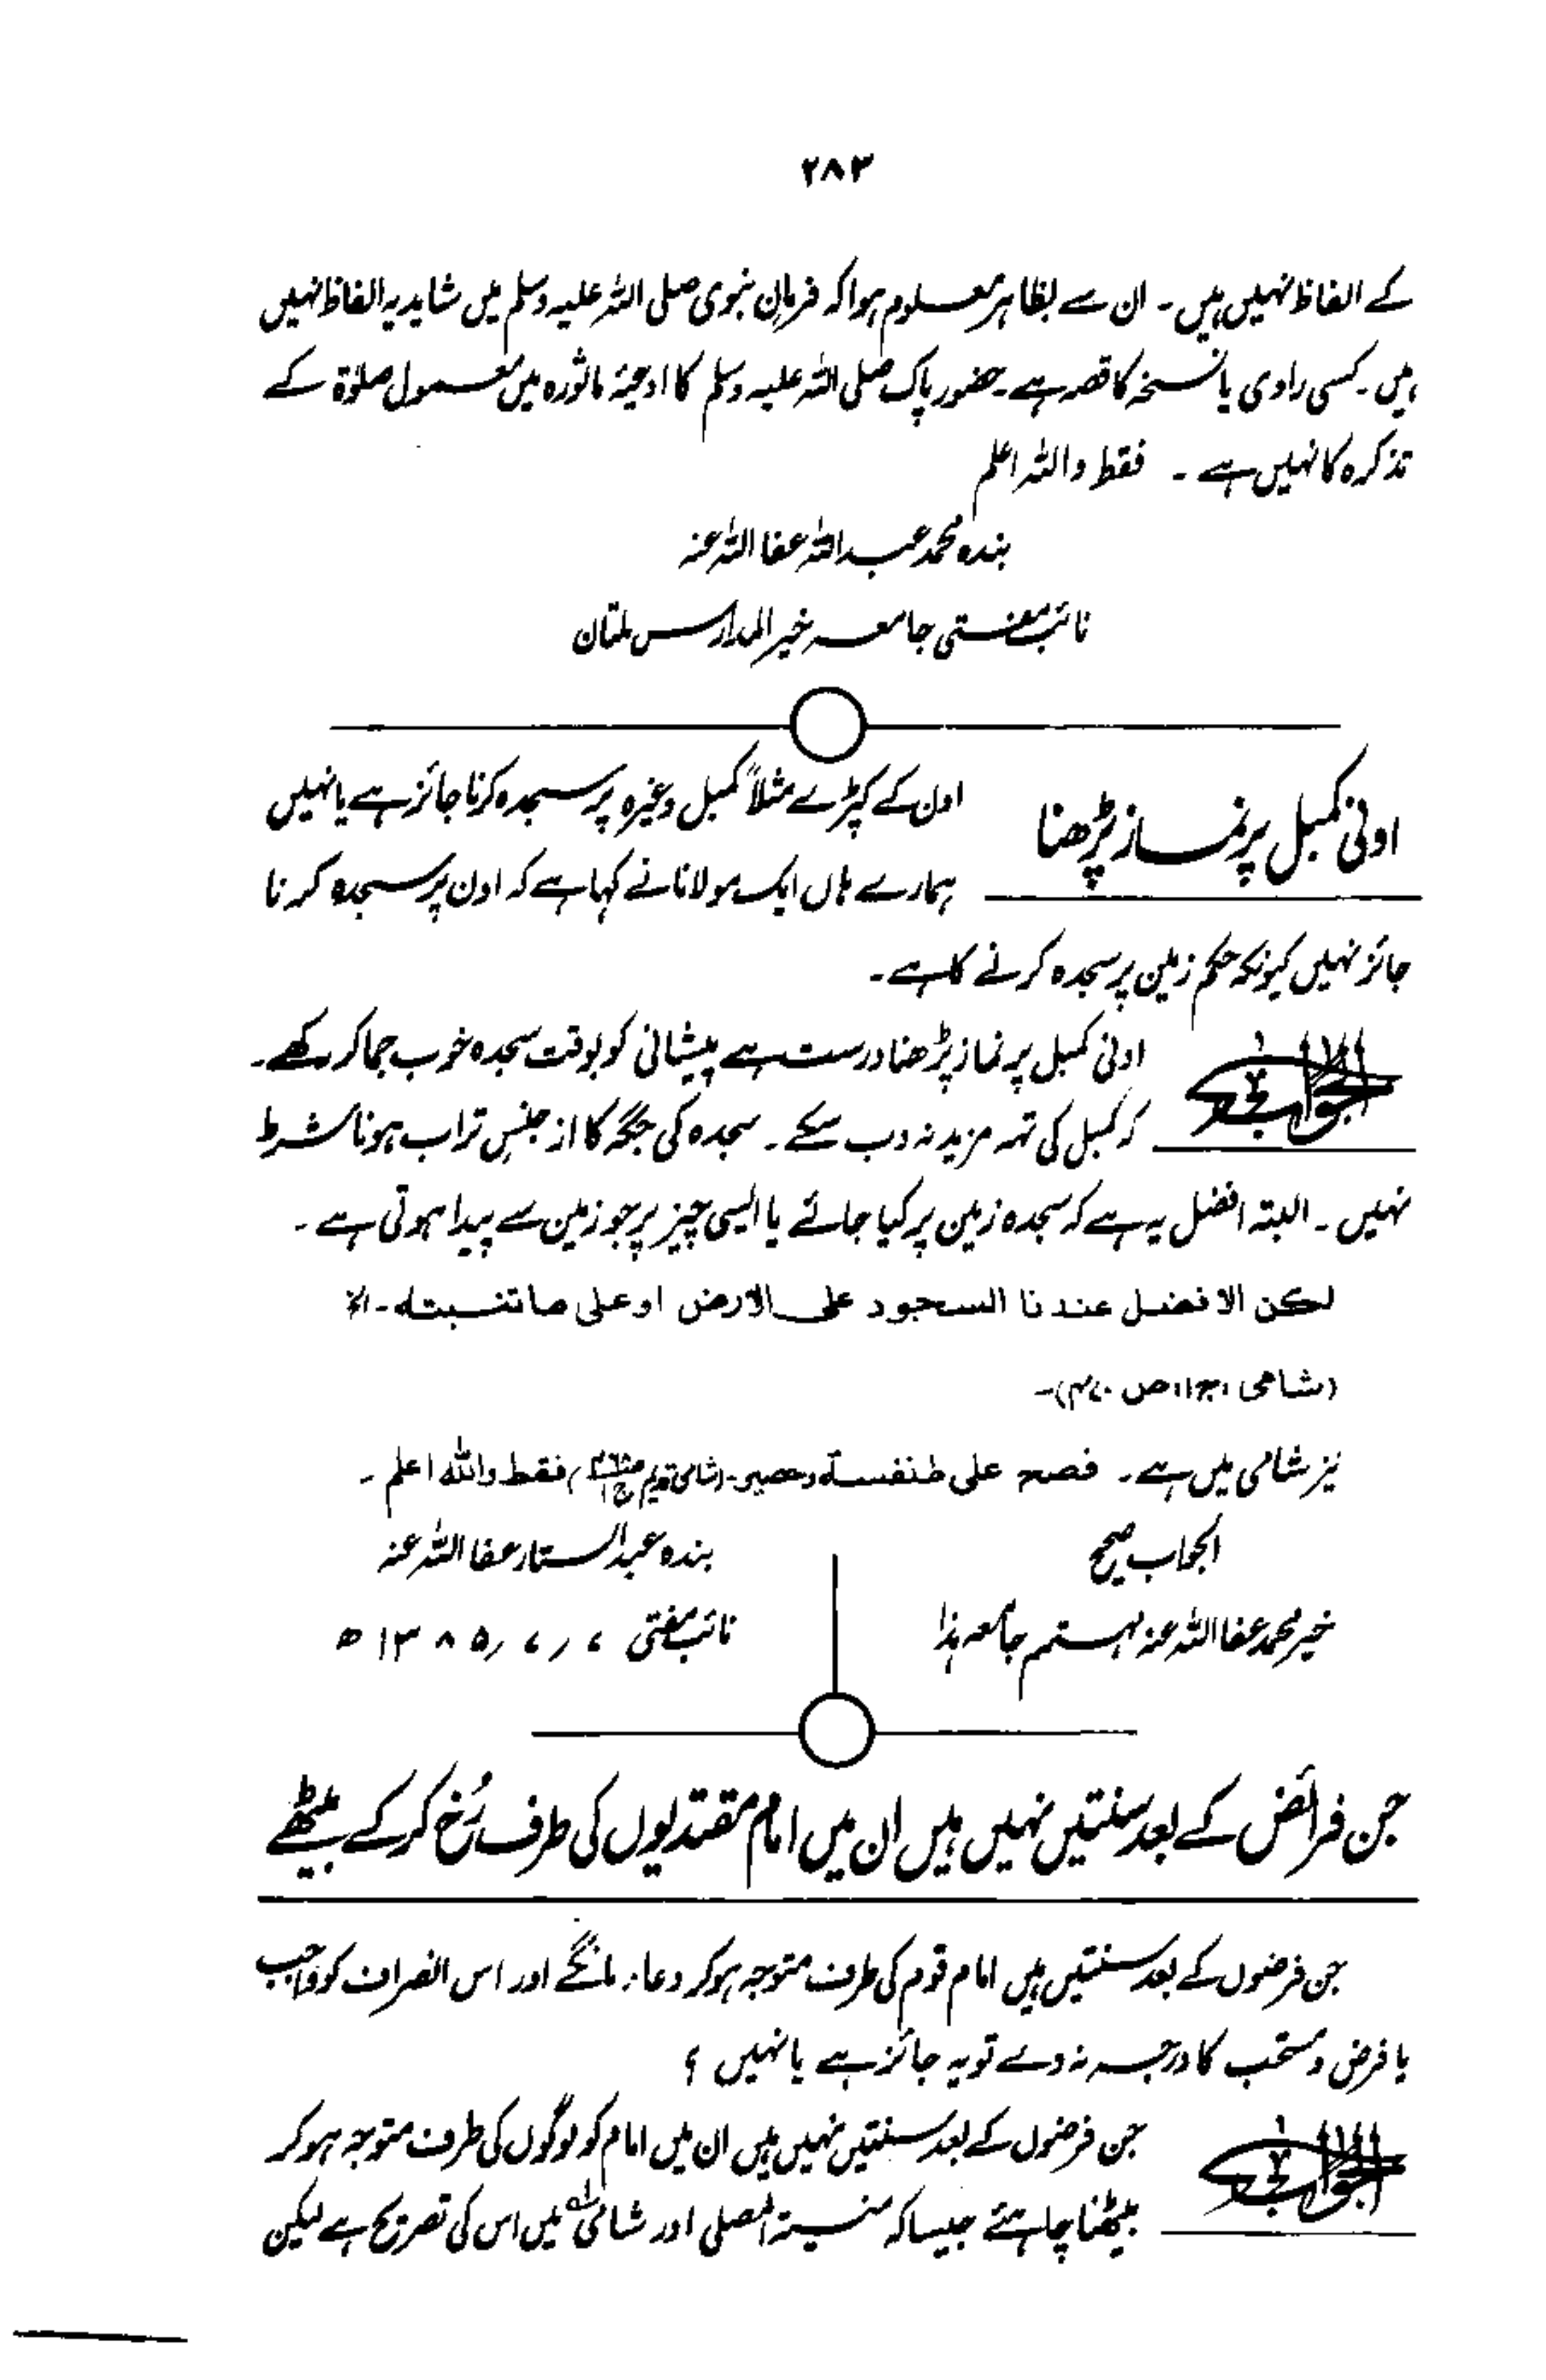 ۲۸۳
کے الفاظ نہیں ہیں ۔ ان سے بظاہر معلوم ہوا کہ فرمانِ نبوی صلی اللہ علیہ وسلم میں شاید یہ الفاظ نہیں
ہیں ۔ کسی راوی یا نسخہ کا قصہ ہے ۔ حضور پاک صلی اللہ علیہ وسلم کا ادعیۂ ماثورہ میں معمول صلوٰۃ کے
تذکرہ کا نہیں ہے ۔ فقط واللہ اعلم
بندہ محمد عبداللہ عفا اللہ عنہ
نائب مفتی جامعہ خیر المدارس ملتان
اونی کمبل پر نماز پڑھنا
اون کے کپڑے مثلاً کمبل وغیرہ پر سجدہ کرنا جائز ہے یا نہیں
ہمارے ہاں ایک مولانا نے کہا ہے کہ اون پر سجدہ کرنا
جائز نہیں کیونکہ حکم زمین پر سجدہ کرنے کا ہے ۔
الجواب
اونی کمبل پر نماز پڑھنا درست ہے پیشانی کو بوقت سجدہ خوب جما کر رکھے ۔
کہ کمبل کی تہہ مزید نہ دب سکے ۔ سجدہ کی جگہ کا از جنسِ تراب ہونا شرط
نہیں ۔ البتہ افضل یہ ہے کہ سجدہ زمین پر کیا جائے یا ایسی چیز پر جو زمین سے پیدا ہوتی ہے ۔
لكن الافضل عندنا السجود على الارض او على ما تنبته ۔ الخ
(شامی ، ج۱، ص ۴۷۰)۔
نیز شامی میں ہے ۔ فصح على طنفسة وحصير ۔ (شامی قدیم ج۱) فقط واللہ اعلم ۔
الجواب صحیح
خیر محمد عفا اللہ عنہ مہتمم جامعہ ہذا
بندہ عبدالستار عفا اللہ عنہ
نائب مفتی ۷ ؍ ۷ ؍ ۱۳۸۵ ھ
جن فرائض کے بعد سنتیں نہیں ہیں ان میں امام مقتدیوں کی طرف رُخ کر کے بیٹھے
جن فرضوں کے بعد سنتیں ہیں امام قوم کی طرف متوجہ ہو کر دعاء مانگے اور اس انصراف کو واجب
یا فرض و مستحب کا درجہ نہ دے تو یہ جائز ہے یا نہیں ؟
الجواب
جن فرضوں کے بعد سنتیں نہیں ہیں ان میں امام کو لوگوں کی طرف متوجہ ہو کر
بیٹھنا چاہئے جیسا کہ منیۃ المصلی اور شامی میں اس کی تصریح ہے لیکن